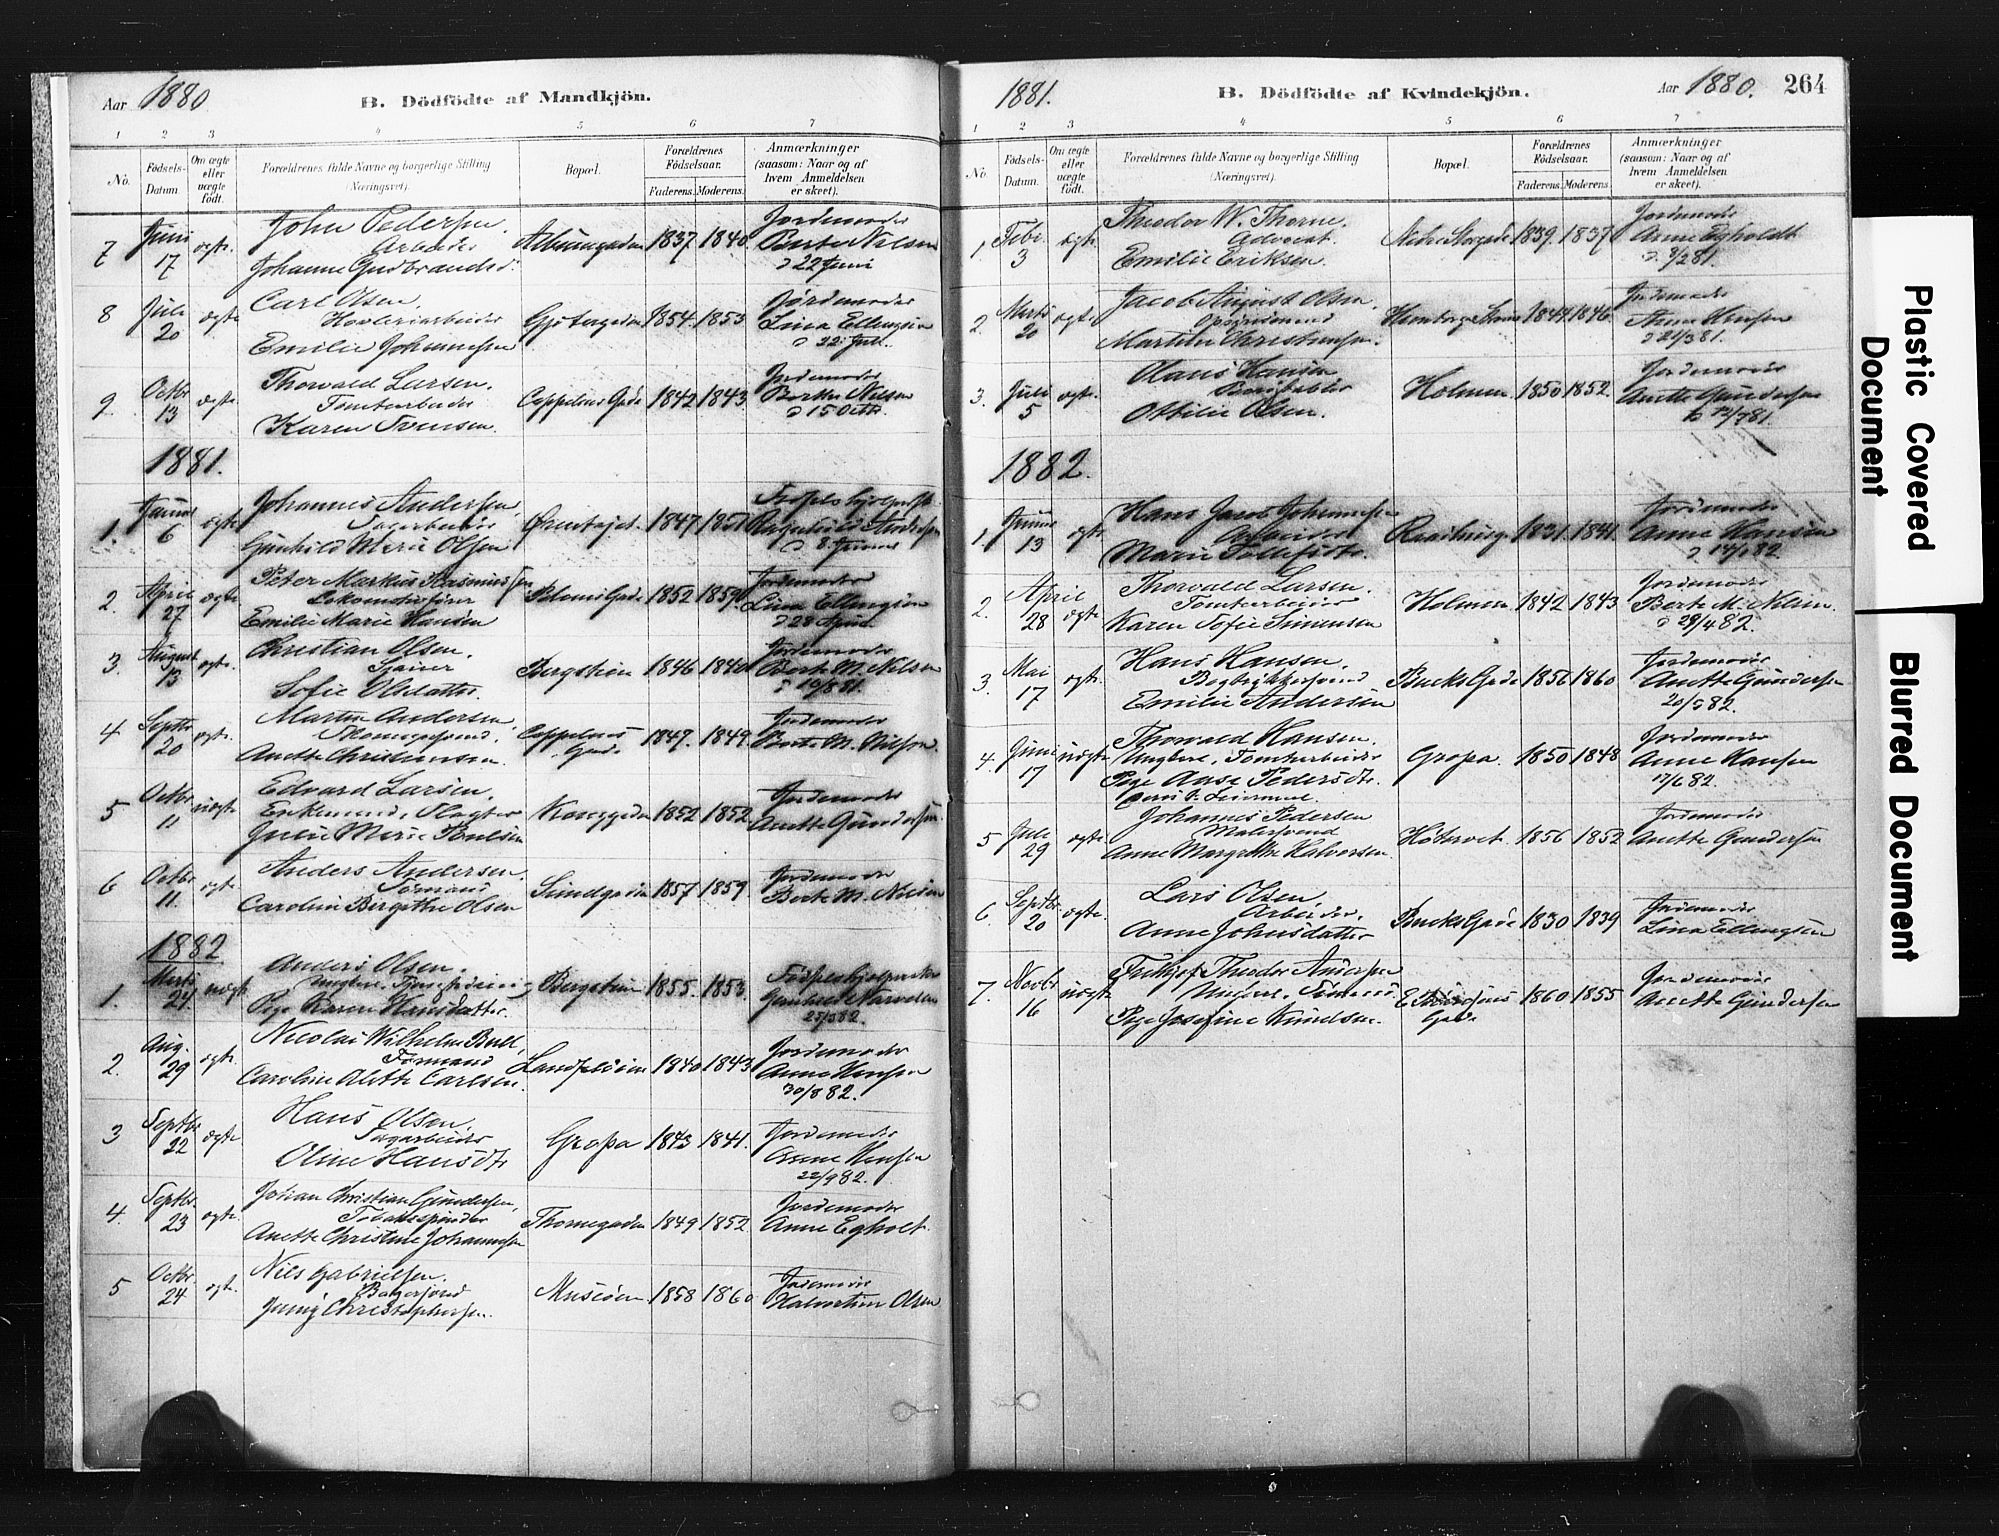 Aar 1880
B. Dödfödte af Mandkjön.
1 2 3 4 5 6 7
No.
Födsels-Datum.
Om ægte eller uægte födt.
Forældrenes fulde Navne og borgerlige Stilling (Næringsvei).
Bopæl.
Forældrenes Födselsaar.
Faderens. Moderens.
Anmærkninger (saasom: Naar og af hvem Anmeldelsen er skeet).
7 Juni 17 ægte
John Pedersen.
Arbeider
Johanne Gudbrandsd.
1837 1840
Jordemoder
Berte Nilsen
22 Juni
8 Juli 20 ægte
Carl Olsen,
Høvleriarbeider
Emilie Johannesen
1854. 1853
Jordemoder
Lina Ellingsen
22 Juli.
9. Octbr 13 ægte
Thorvald Larsen.
Tomtearbeider
Karen Svensen.
Cappelens Gade 1842 1843
Jordemoder
Berthe Nilsen
15 Octbr
1881.
1. Januar 6 ægte
Johannes Andersen,
Gunhild Marie Olsen
1847
Ragnhild Andersen
8. Januar
2. April 27 ægte
Peter Markus Rasmussen
Lokomotivfører
Emilie Marie Hansen
1852 1859
Jordemoder
Lina Ellingsen
28 April
3. August 13 ægte.
Christian Olsen.
Sofie Olsdatter.
Bergstien 1846 1840
Jordemoder
Berte M. Nilsen
19/8 81.
4 Septbr 20 ægte.
Martin Andersen,
Anette Christensen.
Cappelens Gade. 1847. 1849.
Jordemoder
Berte M. Nilsen.
5 Octbr 11 uægte
Edvard Larsen.
Enkemand, Slagter
Julie Marie Poulsen
1852 1852
Jordemoder
Anette Gundersen
6 Octbr 11. ægt
Anders Andersen.
Sømand
Caroline Birgithe Olsen
Sundgaden 1857 1859
Jordemoder
Berte M. Nilsen
1882
1. Marts 24. uægt
Anders Olsen.
Pige Karen Hansdatter.
Bergstien 1855. 1853.
25/3 82.
2. Aug. 29 ægt.
Nicolai Wilhelm Bull,
Formand
Caroline Alette Carlsen.
1840 1843
Jordemoder
Anne Hansen
30/8 82.
3 Septbr 22 ægte
Hans Olsen.
Sagarbeider
Oline Hansdtr
Gropa 1843 1841.
Jordemoder
Anne Hansen
22/9 82.
4. Septbr. 23 ægte.
Johan Christian Gundersen,
Tobakspinder
Anette Christine Johannesen
Thornegaden 1849 1852
Jordemoder
Anne Egholt.
5 Octbr. 24 ægt.
Nils Gabrielsen.
Bagersvend
Jenny Christophersen.
Muusøen 1858 1860
Jordemoder
Halvordine Olsen
1881.
B. Dödfödte af Kvindekjön.
Aar 1880. 264
1 2 3 4 5 6 7
No.
Födsels-Datum.
Om ægte eller uægte födt.
Forældrenes fulde Navne og borgerlige Stilling (Næringsvei).
Bopæl.
Forældrenes Födselsaar.
Faderens. Moderens.
Anmærkninger (saasom: Naar og af hvem Anmeldelsen er skeet).
1. Febr. 3 ægte
Theodor W. Thorne.
Advocat.
Emilie Eriksen.
Nedre Storgade 1839. 1837
Jordemoder
Anne Egholdt
3/2 81.
2. Marts 20 ægt.
Jacob August Olsen,
Opsynsmand
Martine Christensen.
1849 1846.
Jordemoder
Anne Hansen
21/3 81.
3. Juli 5 ægte.
Hans Hansen
Ottilie Olsen.
Holmen. 1850 1852.
Jordemoder
Anette Gundersen
12/7 81.
1882.
1. Januar 13 ægte
Hans Jacob Johannesen
Arbeider
Marie Tollefsdtr.
1831. 1841.
Jordemoder
Anne Hansen
14/1 82
2. April 28 ægte
Thorvald Larsen.
Tomtearbeider
Karen Sofie Simensen
Holmen 1842 1843
Jordemoder
Berte M. Nilsen.
29/4 82.
3. Mai 17 ægt.
Hans Hansen.
Bogtrykkersvend
Emilie Andersen
Bucks Gade 1856 1860
Jordemoder
Anette Gundersen
20/5 82.
4. Juni 17 uægte
Thorvald Hansen.
Ungkar, Tomtearbeider
Pige Aase Pedersdtr.
Gropa. 1850 1848
Jordemoder
Anne Hansen
17/6 82.
5 Juli 29 ægte
Johannes Pedersen
Malersvend
Anne Margrethe Halvorsen.
1856 1852
Jordemoder
Anette Gundersen
6. Septbr. 20 ægte.
Lars Olsen,
Arbeider,
Anne Johnsdatter
Bucks Gade 1830 1839
Jordemoder
Lina Ellingsen
7. Novbr 16 uægte
Fridtjof Theodor Andersen
Ungkar, Sømand
Pige Josefine Knudsen.
Gade 1860 1855
Jordemoder
Anette Gundersen
Plastic Covered Document
Blurred Document